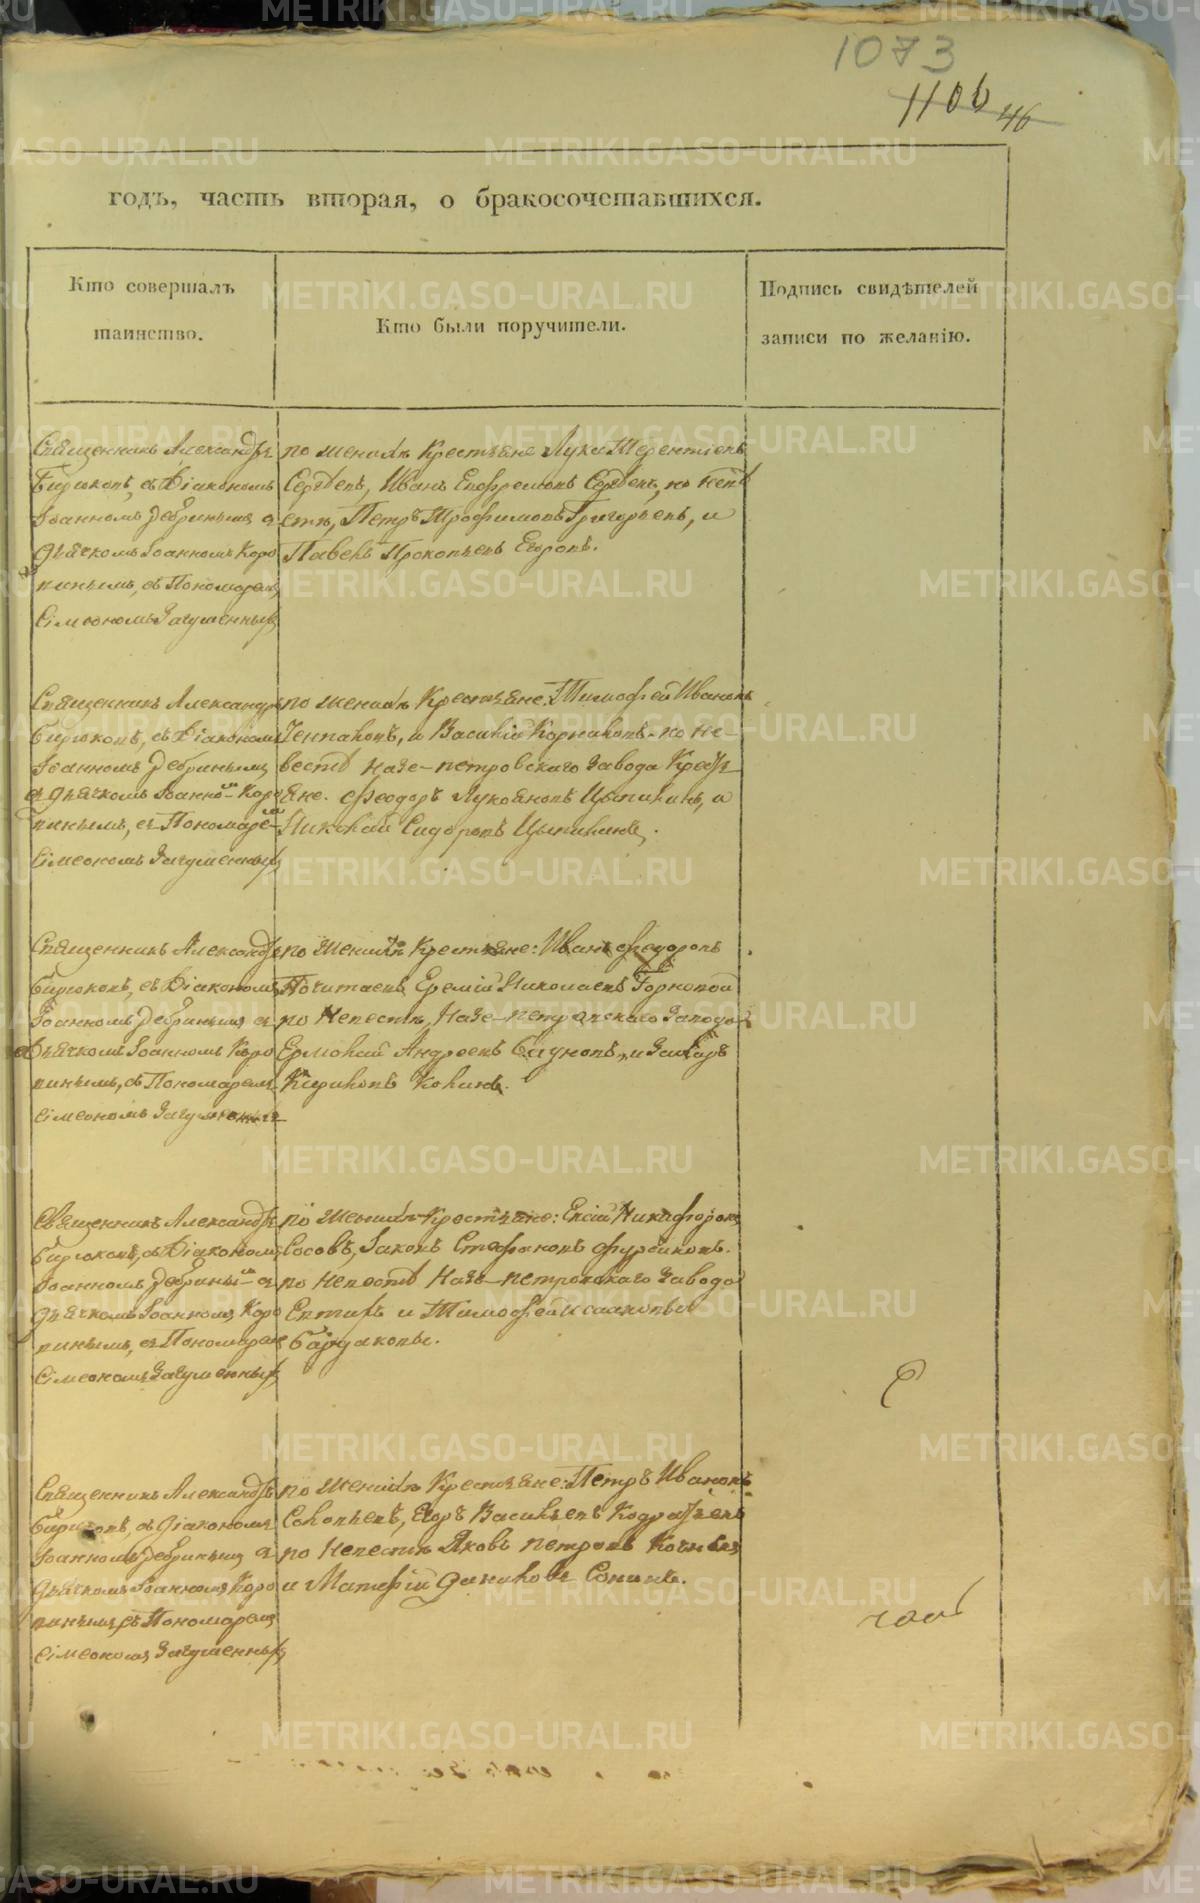 1073
1106 46
годъ, часть вторая, о бракосочетавшихся.
Кто совершалъ
таинство.
Кто были поручители.
Подпись свидѣтелей
записи по желанію.
Священникъ Александръ
Бирюковъ, съ Діакономъ
Іоанномъ Дебринымъ съ
дьячкомъ Іоанномъ Коро
пинымъ, съ Пономаремъ
Сімеономъ Загуменнымъ
по женихѣ Крестьяне Лука Терентьевъ
Сергѣевъ, Иванъ Ефремовъ Сергѣевъ, по невѣ
стѣ, Петръ Трофимовъ Григорьевъ, и
Павелъ Прокопьевъ Егоровъ.
Священникъ Александръ
Бирюковъ, съ Діакономъ
Іоанномъ Дебринымъ
съ дьячкомъ Іоанномъ Коро
пинымъ, съ Пономаремъ
Сімеономъ Загуменнымъ
по женихѣ Крестьяне: Тимофей Ивановъ
и Василій Корниловъ. по не-
вестѣНазе-петровскаго завода Кресть
яне. Феодоръ Лукояновъ Цыпилинъ, и
Николай Сидоровъ Цыпилинъ.
Священникъ Александръ
Бирюковъ, съ Діакономъ
Іоанномъ Дебринымъ съ
дьячкомъ Іоанномъ Коро
пинымъ, съ Пономаремъ
Сімеономъ Загуменнымъ
по женихѣ Крестьяне: Иванъ Феодоровъ
Почитаевъ, Еремій Николаевъ
по Невестѣ, Назе-петровскаго завода
Ермолай Андреевъ и Захаръ
Кириловъ
Священникъ Александръ
Бирюковъ, съ Діакономъ
Іоанномъ Дебринымъ съ
дьячкомъ Іоанномъ Коро
пинымъ, съ Пономаремъ
Сімеономъ Загуменнымъ
по женихѣ Крестьяне: Никифоровъ
Стефановъ
по невестѣ Назе-петровскаго завода
и Тимофей Исааковы
Священникъ Александръ
Бирюковъ, съ Діакономъ
Іоанномъ Дебринымъ съ
дьячкомъ Іоанномъ Коро
пинымъ, съ Пономаремъ
Сімеономъ Загуменнымъ
по женихѣ Крестьяне: Петръ Ивановъ
Егоръ Васильевъ Кодратьевъ
по Невестѣ Яковъ Петровъ
и Матфій Даниловъ Сопинъ.
METRIKI.GASO-URAL.RU